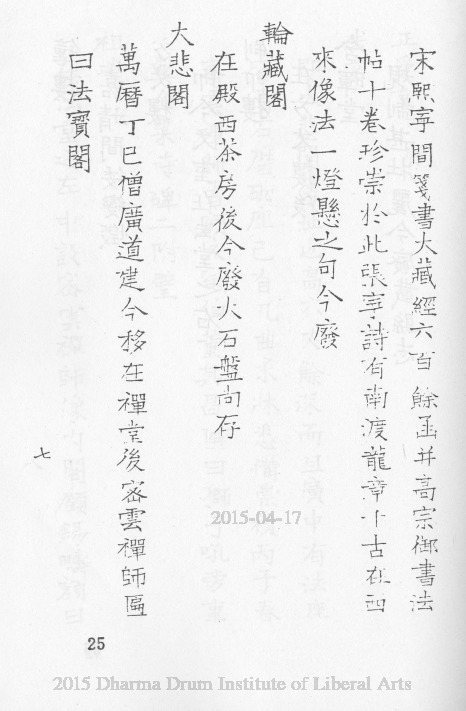 宋熙寧間箋書大藏經六百餘函并高宗御書法
帖十卷珍崇於此張寧詩有南渡龍章千古在西
來像法一燈懸之句今廢
輪藏閣
在殿西茶房後今廢火石盤尚存
大悲閣
萬曆丁巳僧廣道建今移在禪堂後密雲禪師匾
曰法寶閣
七
25
2015-04-17
2015 Dharma Drum Institute of Liberal Arts